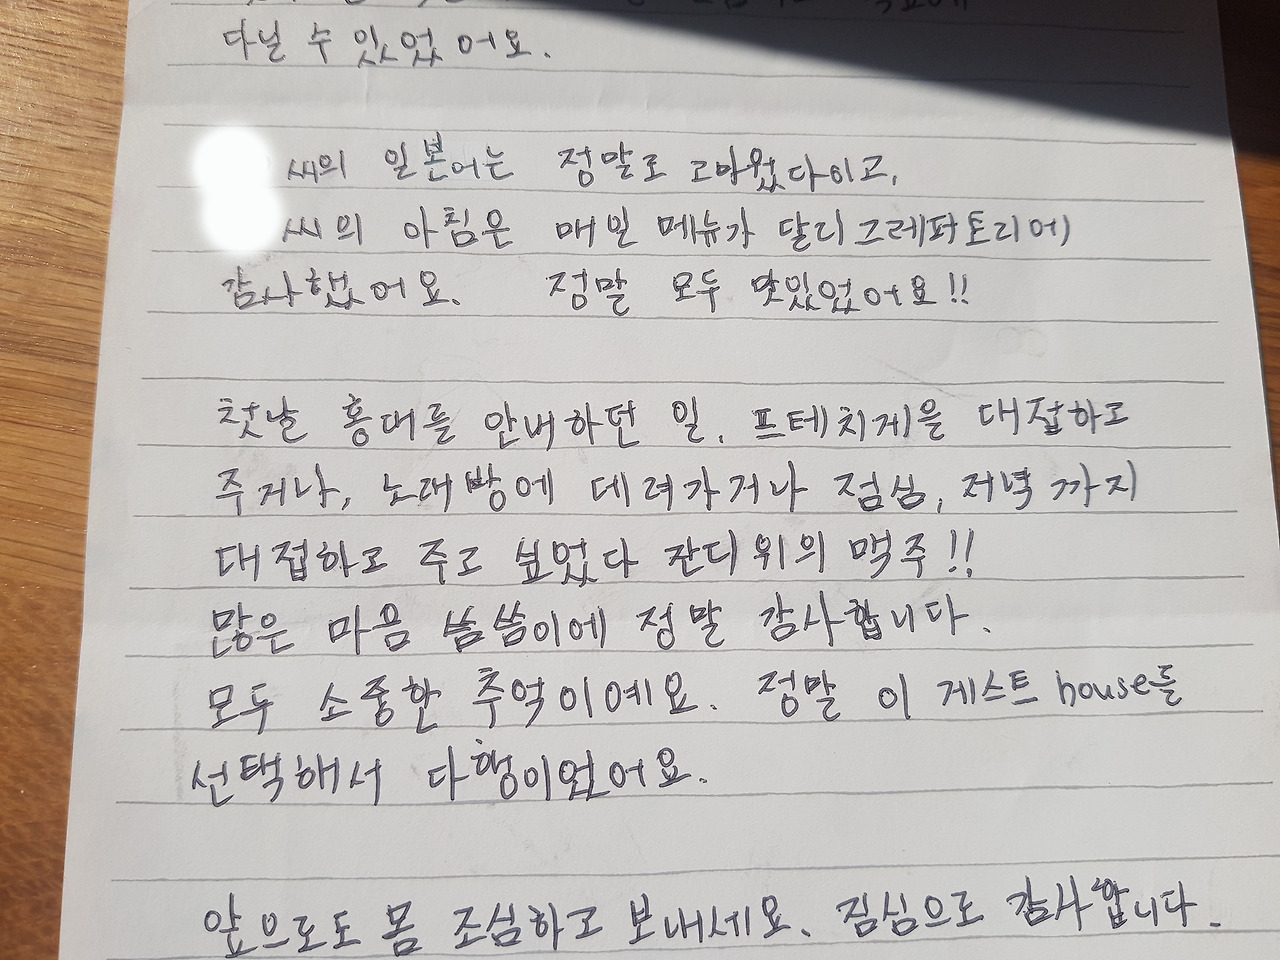 다닐 수 있었어요.
씨의 일본어는 정말로 고마웠다이고,
씨의 아침은 매일 메뉴가 달리 그레퍼토리에
감사했어요. 정말 모두 맛있었어요!!
첫날 홍대를 안내하던 일. 프테치게을 대접하고
주거나, 노래방에 데려가거나 점심, 저녁까지
대접하고 주고 싶었다 잔디위의 맥주!!
많은 마음 씀씀이에 정말 감사합니다.
모두 소중한 추억이예요. 정말 이 게스트 house를
선택해서 다행이었어요.
앞으로도 몸 조심하고 보내세요. 짐심으로 감사합니다.